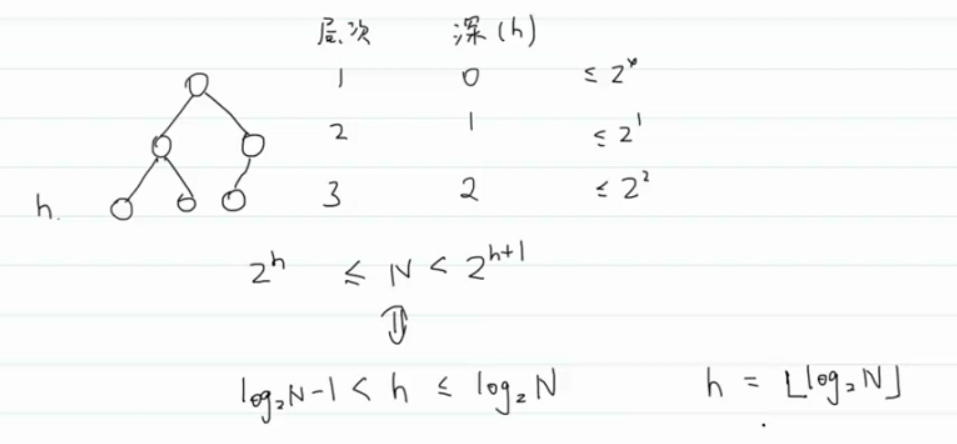 层次 深(h)
1 0 ≤ 2⁰
2 1 ≤ 2¹
3 2 ≤ 2²
h.
2^h ≤ N < 2^{h+1}
⇓
log₂N-1 < h ≤ log₂N h = ⌊log₂N⌋